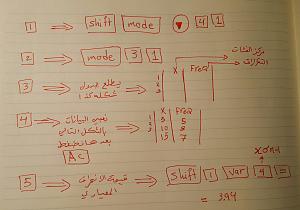 1 ⇒ shift mode ▼ 4 1
2 ⇒ mode 3 1
3 ⇒ يطلع جدول شكله كذا ⇒ X Freq مركز الفئات التكرارات
1
2
3
4 ⇒ نعبي البيانات بالشكل التالي ⇒ X Freq
1 3 5
2 8
3 7
بعدها نضغط
AC
5 ⇒ قيمة الانحراف المعياري ⇒ shift 1 var 4 =
xσn-1
= 3.94